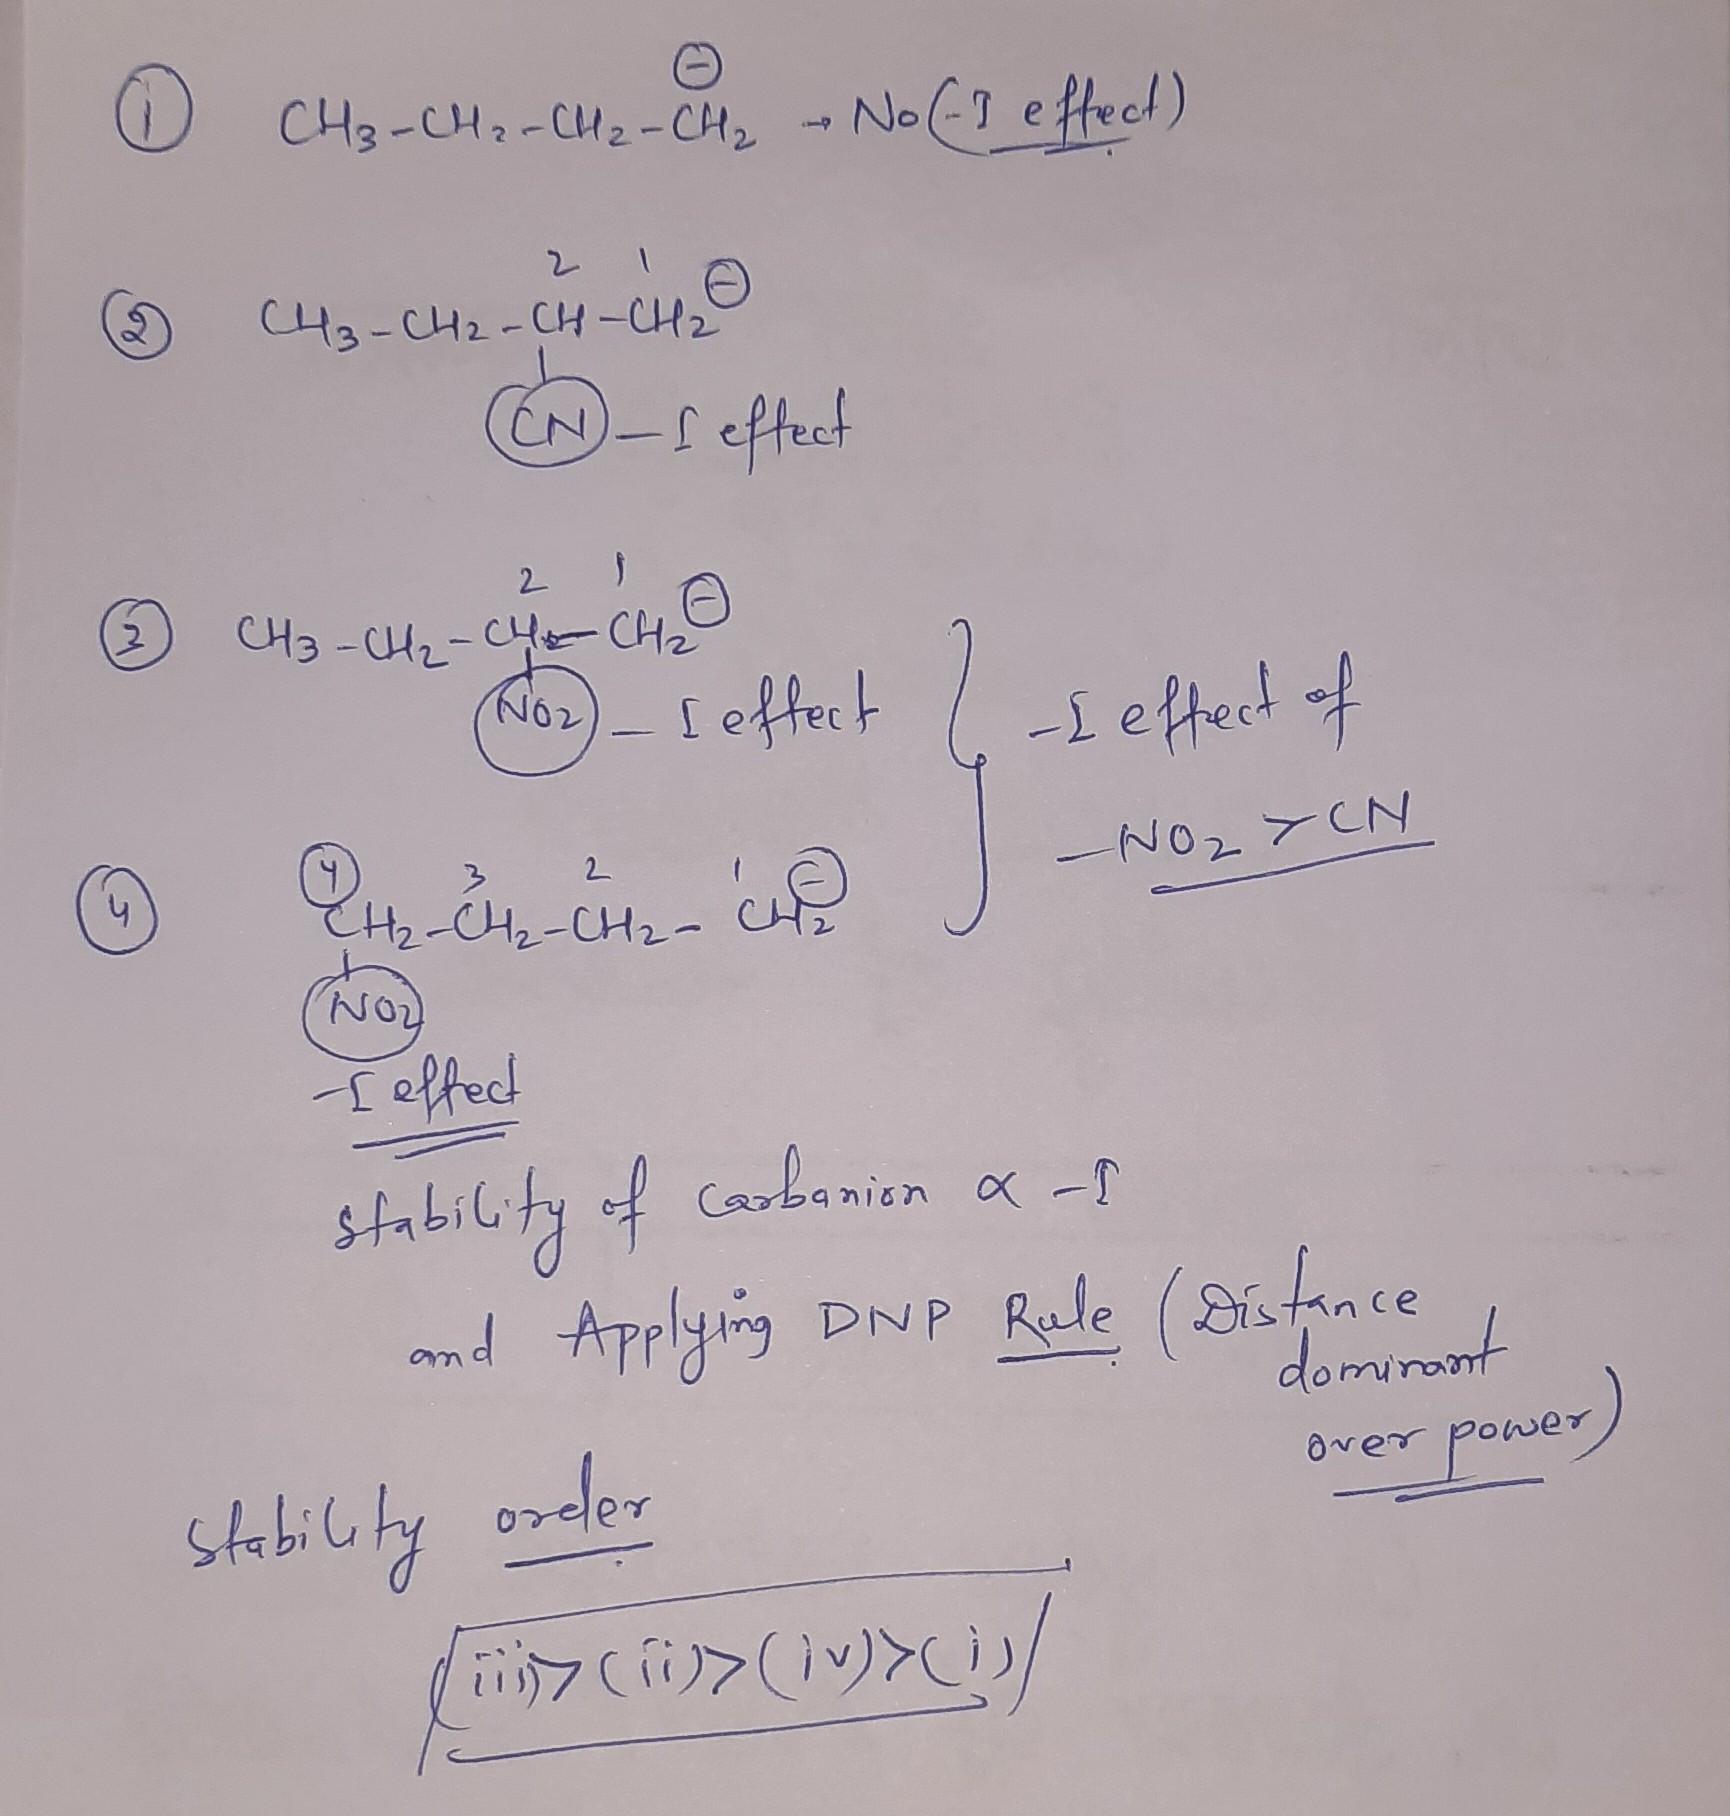 ① CH3-CH2-CH2-CH2⊖ → No(-I effect)
2 1
② CH3-CH2-CH-CH2⊖
CN -I effect
2 1
③ CH3-CH2-CH-CH2⊖
NO2 -I effect
-I effect of
-NO2 > CN
4 3 2 1
④ CH2-CH2-CH2-CH2⊖
NO2
-I effect
stability of carbanion α -I
and Applying DNP Rule (Distance
dominant
over power)
Stability order
(iii)>(ii)>(iv)>(i)